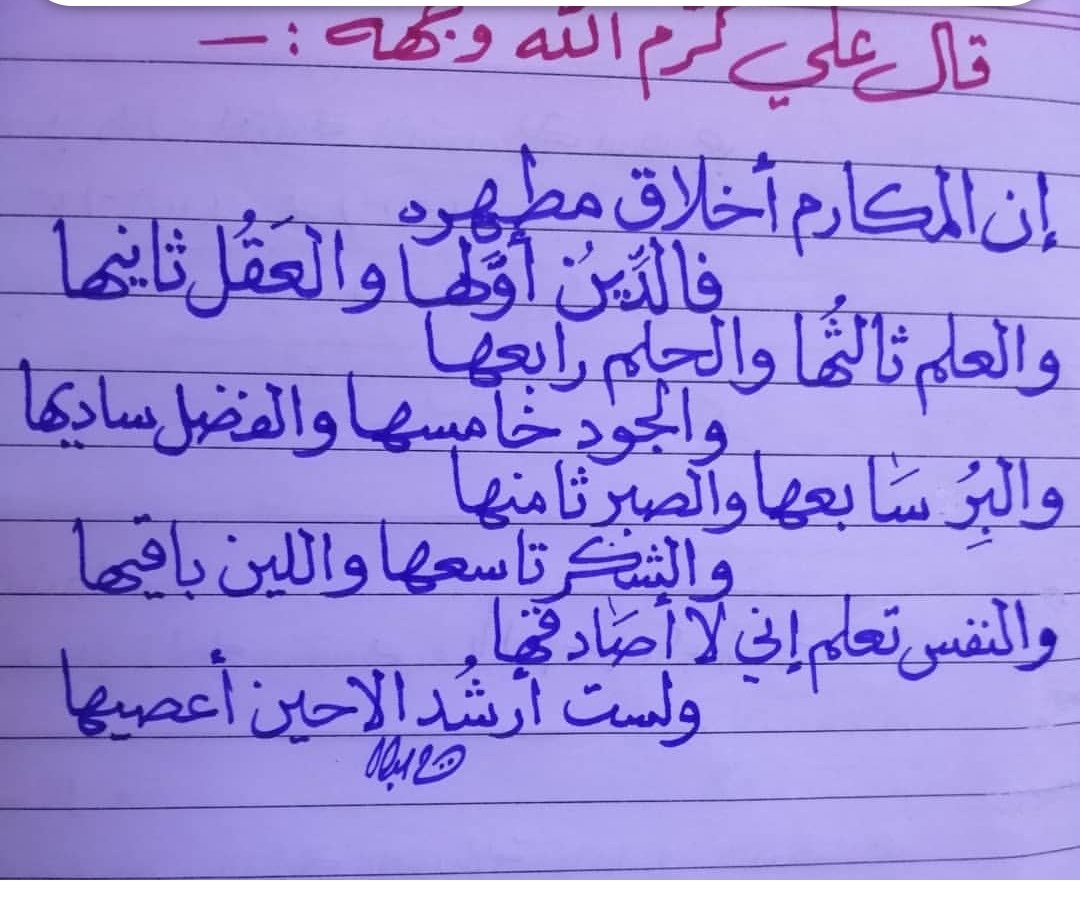 قال علي كرم الله وجهه :ـ
إن المكارم أخلاق مطهره
فالدَّينُ أوَّلها والعَقُل ثانيها
والعلم ثالثُها والحلم رابعها
والجود خامسها والفضل ساديها
والبِرُ سَابعها والصبر ثامنها
والشكر تاسعها واللين باقيها
والنفس تعلم إني لا أصَادقها
ولست أرشُد الاحين أعصيها